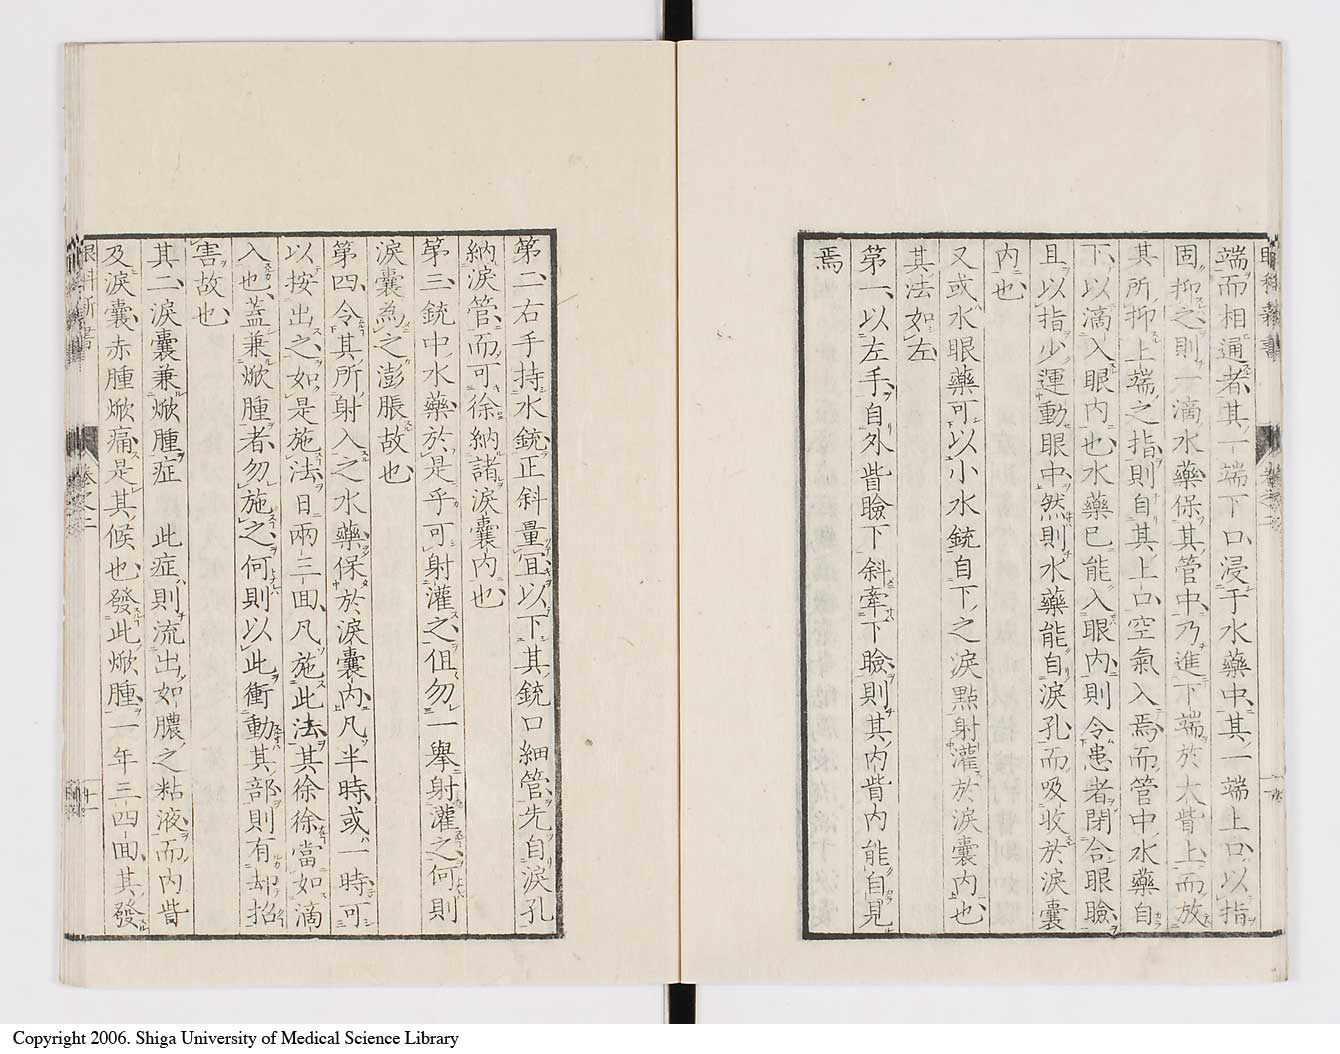 端而相通者其一端下口浸于水藥中其一端上口以指
固抑之則一滴水藥保其管中乃進下端於大眥上而放
其所抑上端之指則自其上口空氣入焉而管中水藥自
下以滴入眼内也水藥已能入眼内則令患者閉合眼瞼
且以指少運動眼中然則水藥能自淚孔而吸收於淚囊
内也
又或水眼藥可以小水銃自下之淚點射灌於淚囊内也
其法如左
第一以左手自外眥瞼下斜牽下瞼則其内眥内能自見
焉
第二右手持水銃正斜量宜以下其銃口細管先自淚孔
納淚管而可徐納諸淚囊内也
第三銃中水藥於是乎可射灌之但勿一擧射灌之何則
淚囊為之澎脹故也
第四令其所射入之水藥保於淚囊内凡半時或一時可
以按出之如是施法日兩三回凡施此法其徐徐當如滴
入也蓋兼焮腫者勿施之何則以此衝動其部則有却招
害故也
其二淚囊兼焮腫症 此症則流出如膿之粘液而内眥
及淚囊赤腫焮痛是其候也發此焮腫一年三四回其發
眼科新書
卷之二
Copyright 2006. Shiga University of Medical Science Library